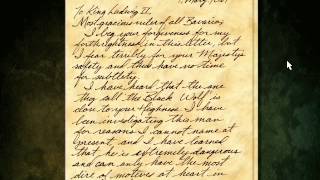 To King Ludwig II,
Most gracious ruler of all Bavaria,
I beg your forgiveness for my
forthrightness in this letter, but
I fear terribly for your Majesty's
safety and thus have no time
for subtlety.
I have heard that the one
they call the Black Wolf is
close to your Highness. I have
been investigating this man
for reasons I cannot name at
present, and I have learned
that he is extremely dangerous
and can only have the most
dire of motives at heart in